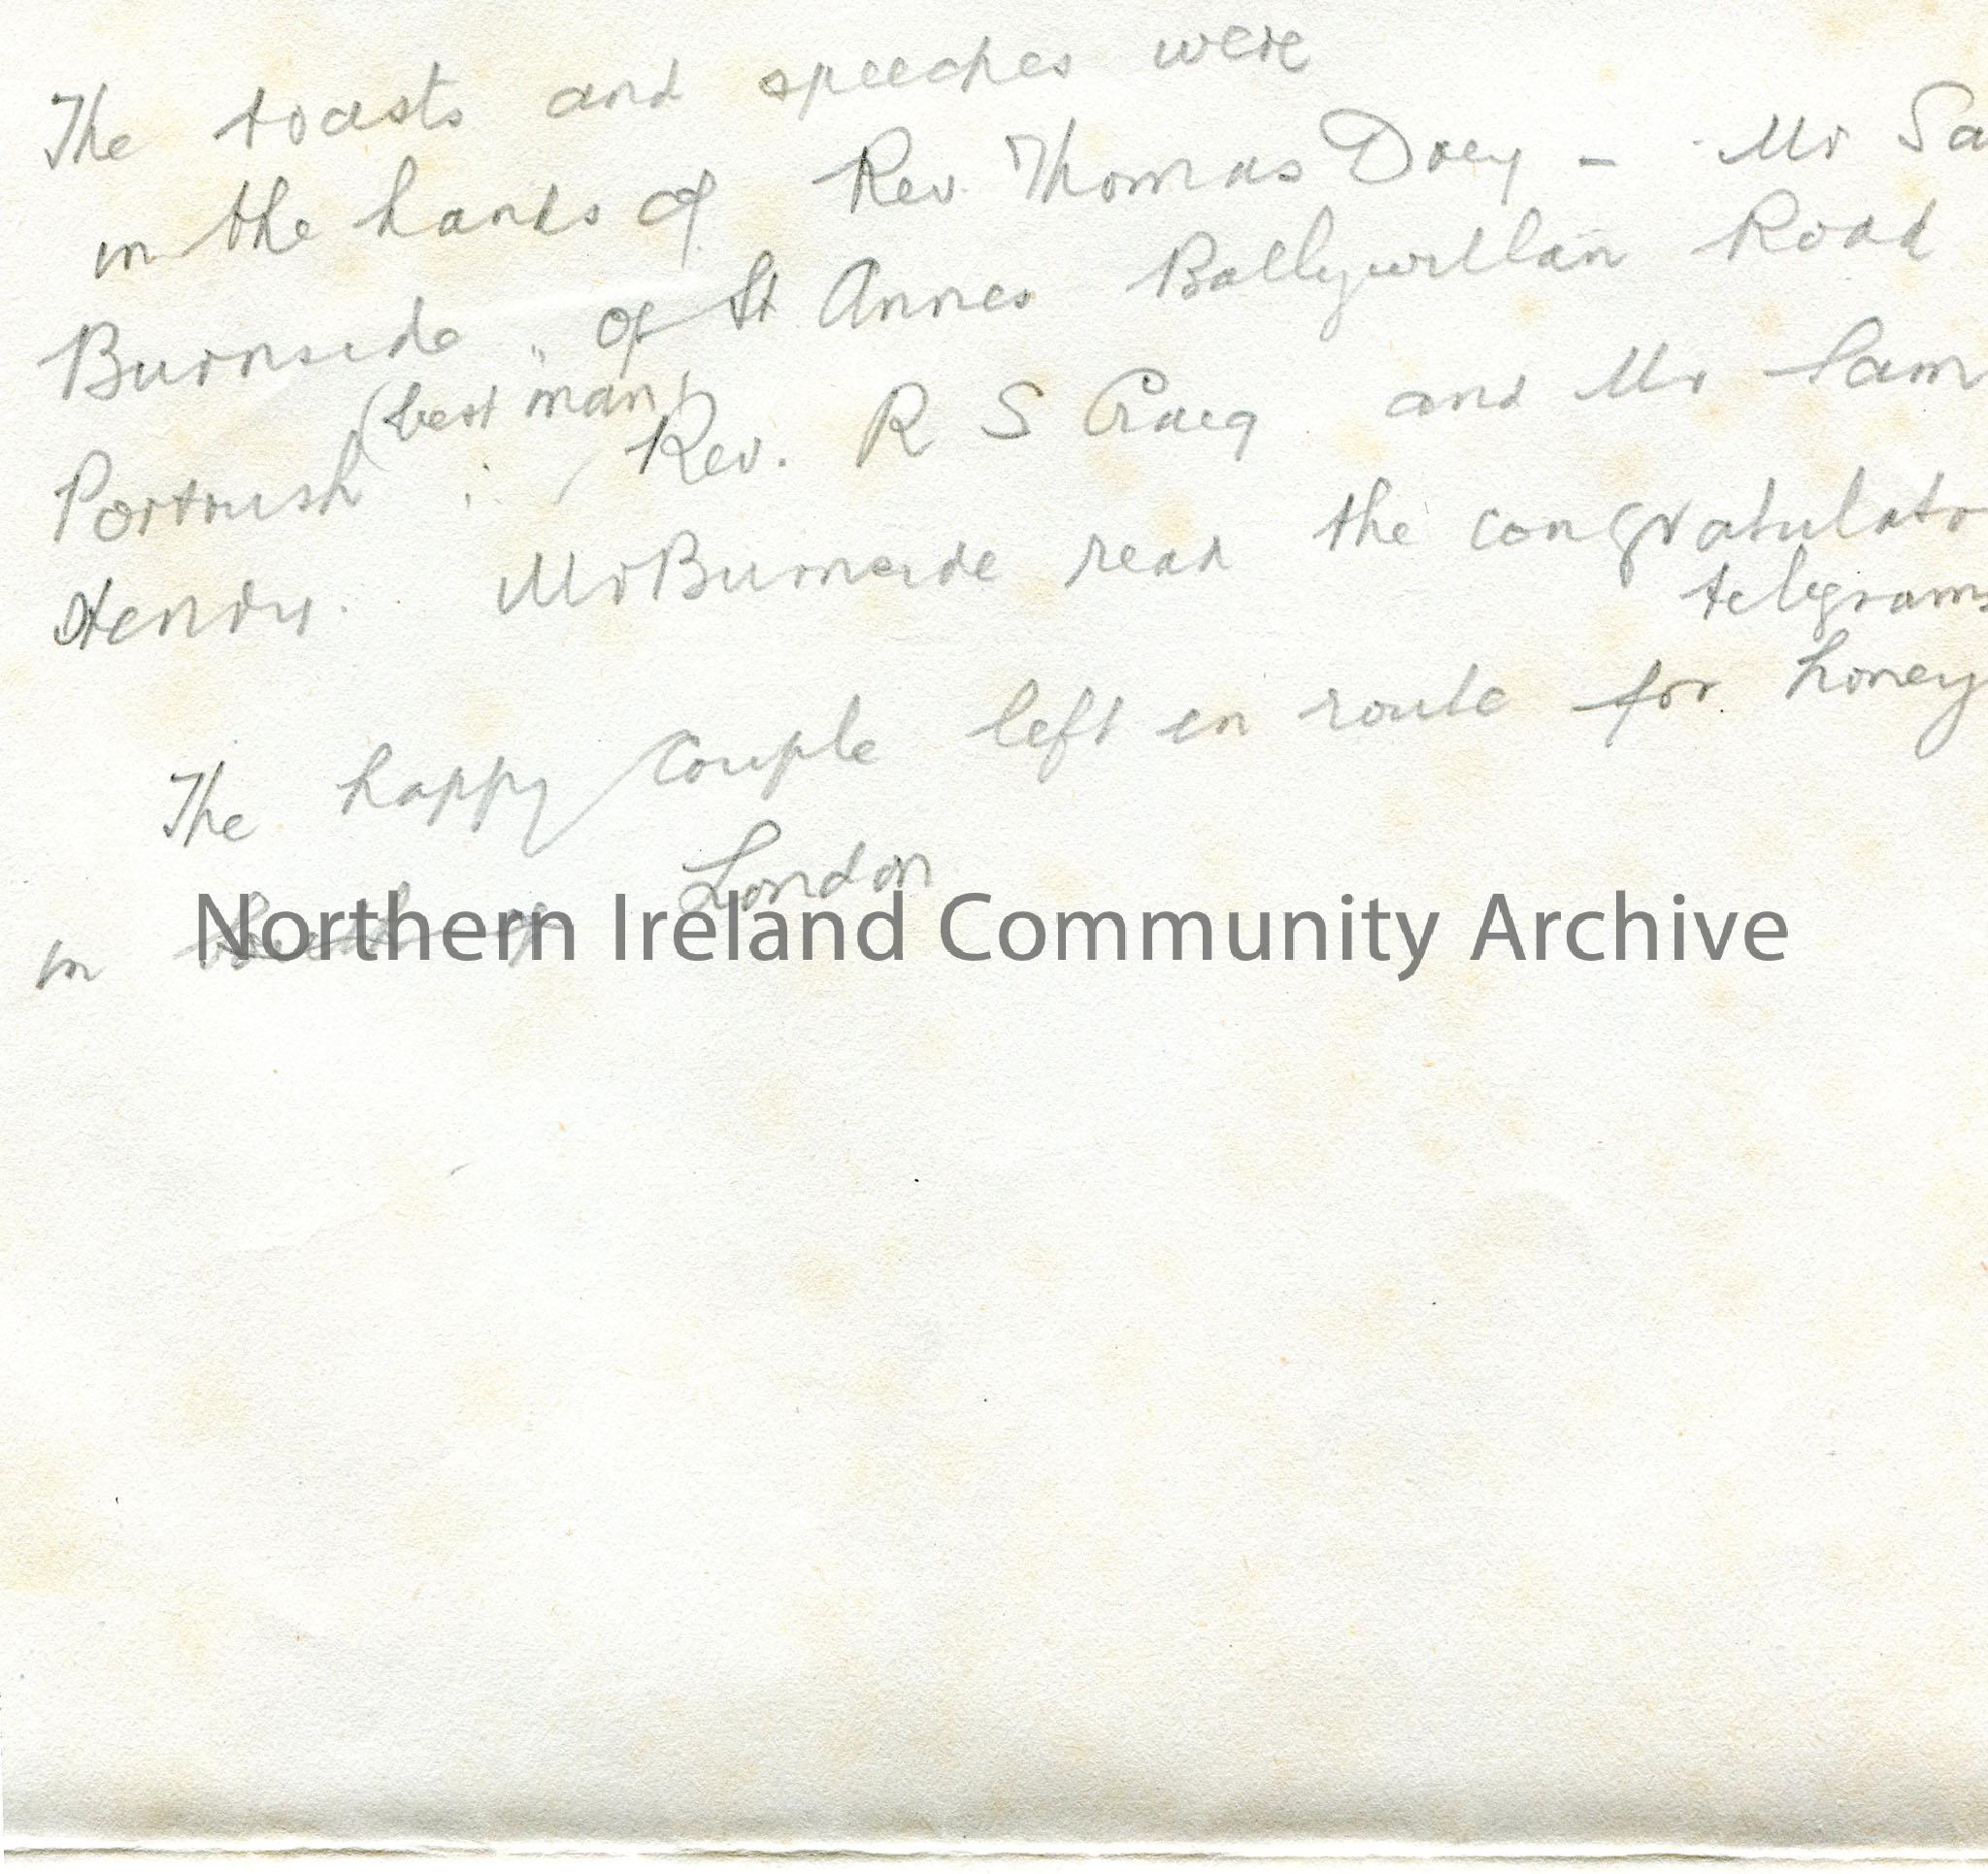 The toasts and speeches were
in the hands of Rev. Thomas Doey - Mr Sa
Burnside of St Annes Ballywillan Road
(best man)
Portrush Rev. R S Craig and Mr Sam
Henry. Mr Burnside read the congratulato
telegrams
The happy couple left en route for honey
in South of London
Northern Ireland Community Archive